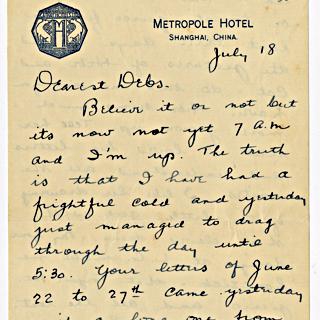 METROPOLE HOTEL
SHANGHAI, CHINA.
July 18
Dearest Debs.
Believe it or not but
its now not yet 7 A.M
and I'm up. The truth
is that I have had a
frightful cold and yesterday
just managed to drag
through the day until
5:30. Your letters of June
22 to 27th came yesterday